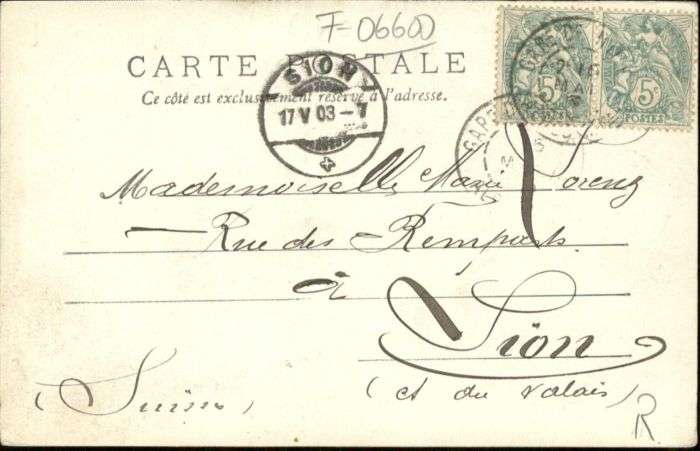 F-06600
CARTE POSTALE
Ce côté est exclusivement réservé à l'adresse.
SION
17 V 03 - 7
5c 5c
POSTES POSTES
GARE
GARE
Mademoiselle Marie Lorenz
Rue des Remparts
à
Sion
(Suisse) (ct du Valais)
R